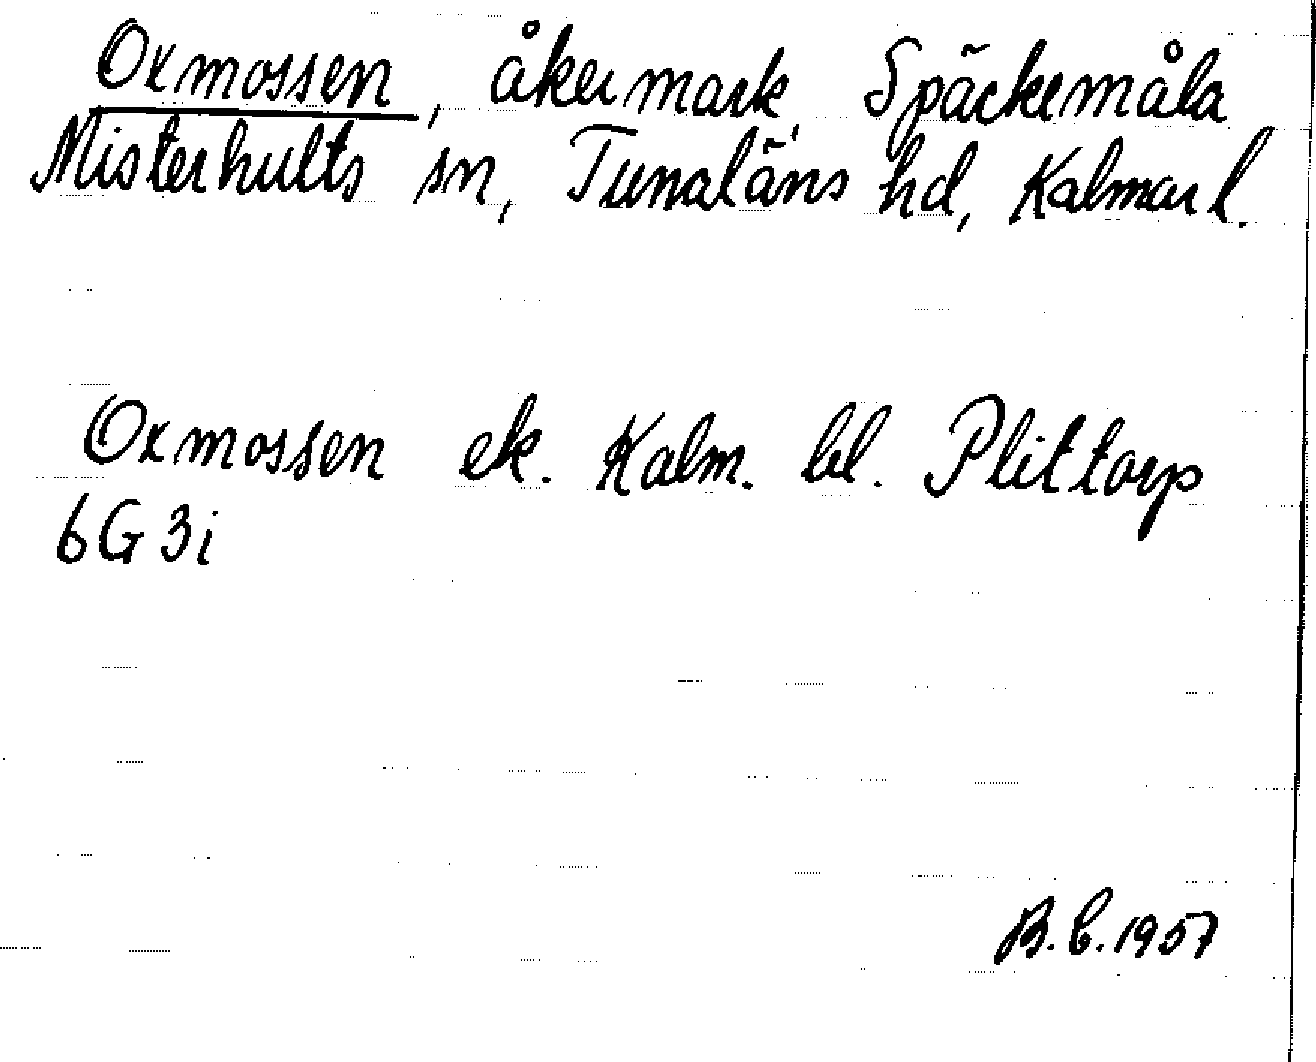 Oxmossen, åkermark, Späckemåla
Misterhults sn, Tunaläns hd, Kalmar l.
Oxmossen ek. Kalm. bl. Plittorp
6G 3i
B.E. 1957